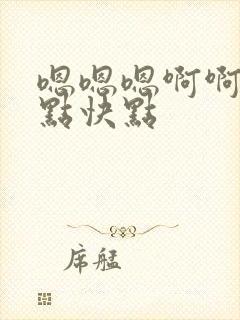 嗯嗯嗯啊啊
點快點
席艋